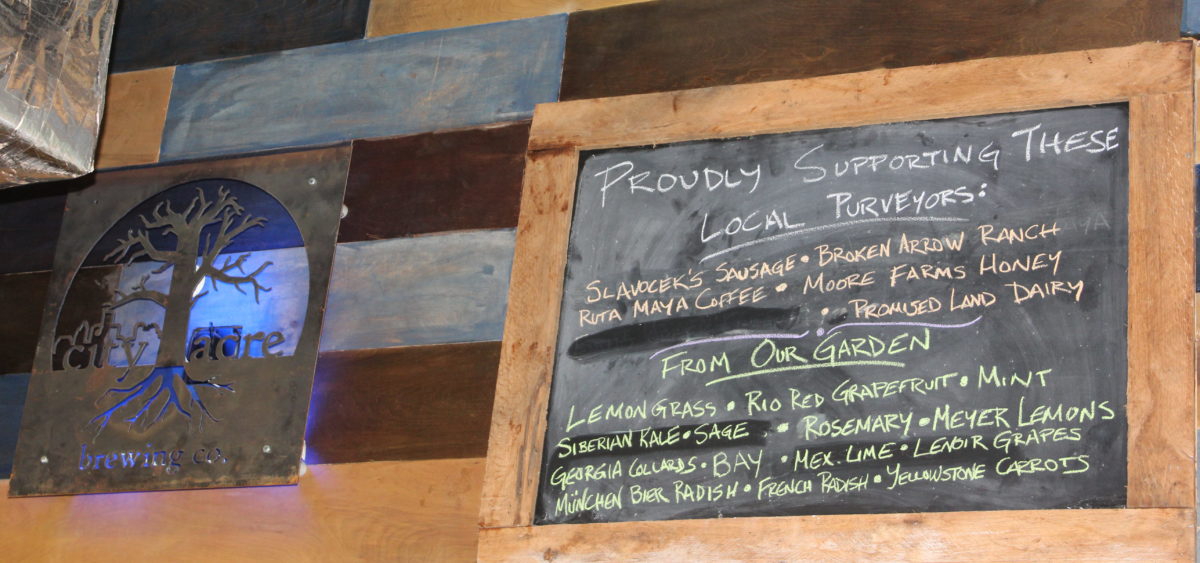 city acre
brewing co.
PROUDLY SUPPORTING THESE
LOCAL PURVEYORS:
SLAVOCEK'S SAUSAGE • BROKEN ARROW RANCH
RUTA MAYA COFFEE • MOORE FARMS HONEY
• PROMISED LAND DAIRY
FROM OUR GARDEN
LEMONGRASS • RIO RED GRAPEFRUIT • MINT
SIBERIAN KALE • SAGE • ROSEMARY • MEYER LEMONS
GEORGIA COLLARDS • BAY • MEX. LIME • LENOIR GRAPES
MÜNCHEN BIER RADISH • FRENCH RADISH • YELLOWSTONE CARROTS